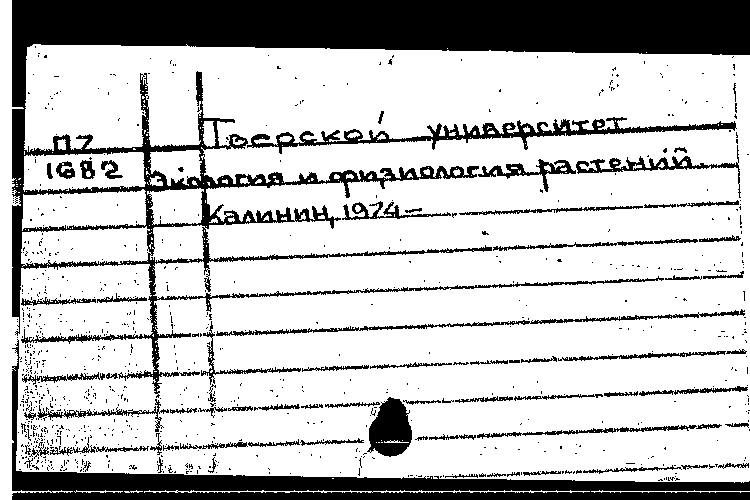 П7
1682
Тверской университет
Экология и физиология растений.
Калинин, 1974–